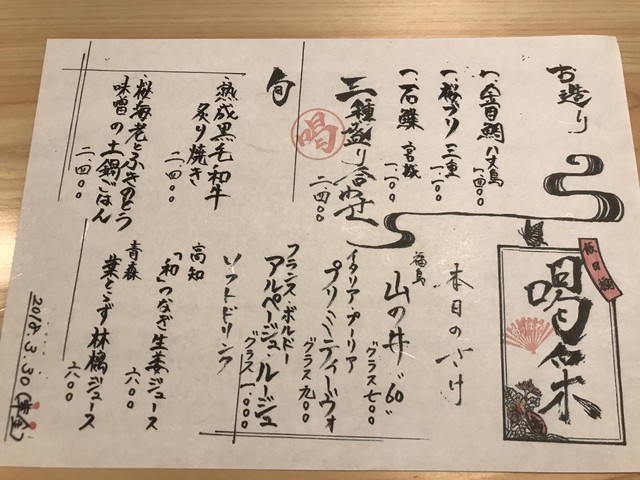 お造り
一、金目鯛 八丈島 一.四〇〇
一、桜ブリ 三重 一.二〇〇
一、石鰈 宮城
三種盛り合わせ 二.四〇〇
旬
熟成黒毛和牛
炙り焼き
二.四〇〇
桜海老とふきのとう
味噌の土鍋ごはん
二.四〇〇
本日のさけ
福島
山の井"60"
グラス七〇〇
イタリア・プーリア
プリミティーヴォ
グラス九〇〇
フランス・ボルドー
アルページュ・ルージュ
グラス一.〇〇〇
ソフトドリンク
高知
「和」つなぎ生姜ジュース
六〇〇
青森
葉とらず林檎ジュース
六〇〇
2018.3.30(金)